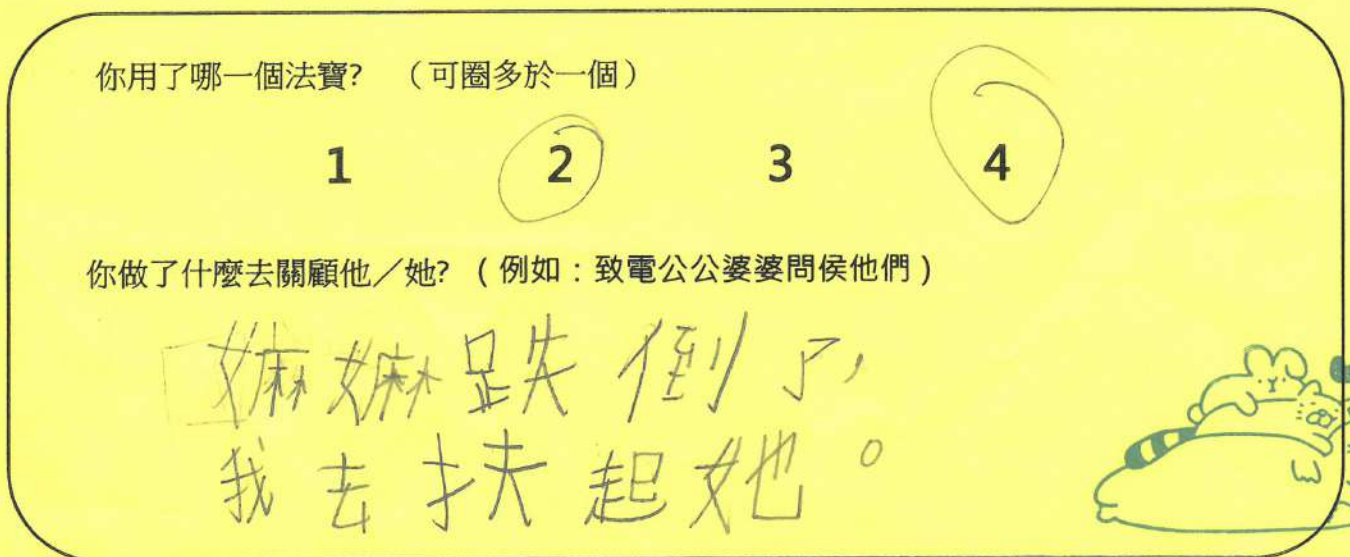 你用了哪一個法寶? （可圈多於一個）
1 2 3 4
你做了什麼去關顧他／她? （例如：致電公公婆婆問侯他們）
嫲嫲跌倒了，
我去扶起她。